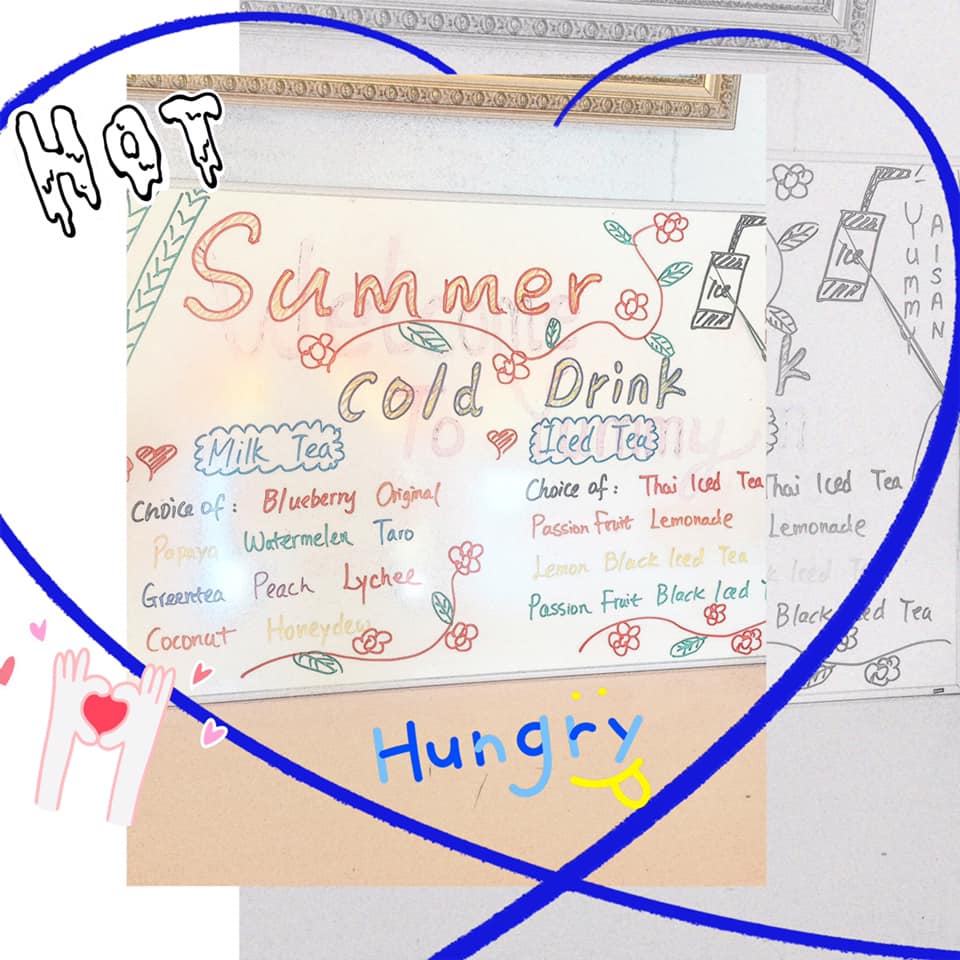 HOT
Summer
Cold Drink
Ice
Ice
Yummy
AISAN
Milk Tea
Choice of: Blueberry Original
Papaya Watermelen Taro
Greentea Peach Lychee
Coconut Honeydew
Iced Tea
Choice of: Thai Iced Tea
Passion Fruit Lemonade
Lemon Black Iced Tea
Passion Fruit Black Iced
Welcome
To Yummy
Thai Iced Tea
Lemonade
k Iced
Black Iced Tea
Hungry